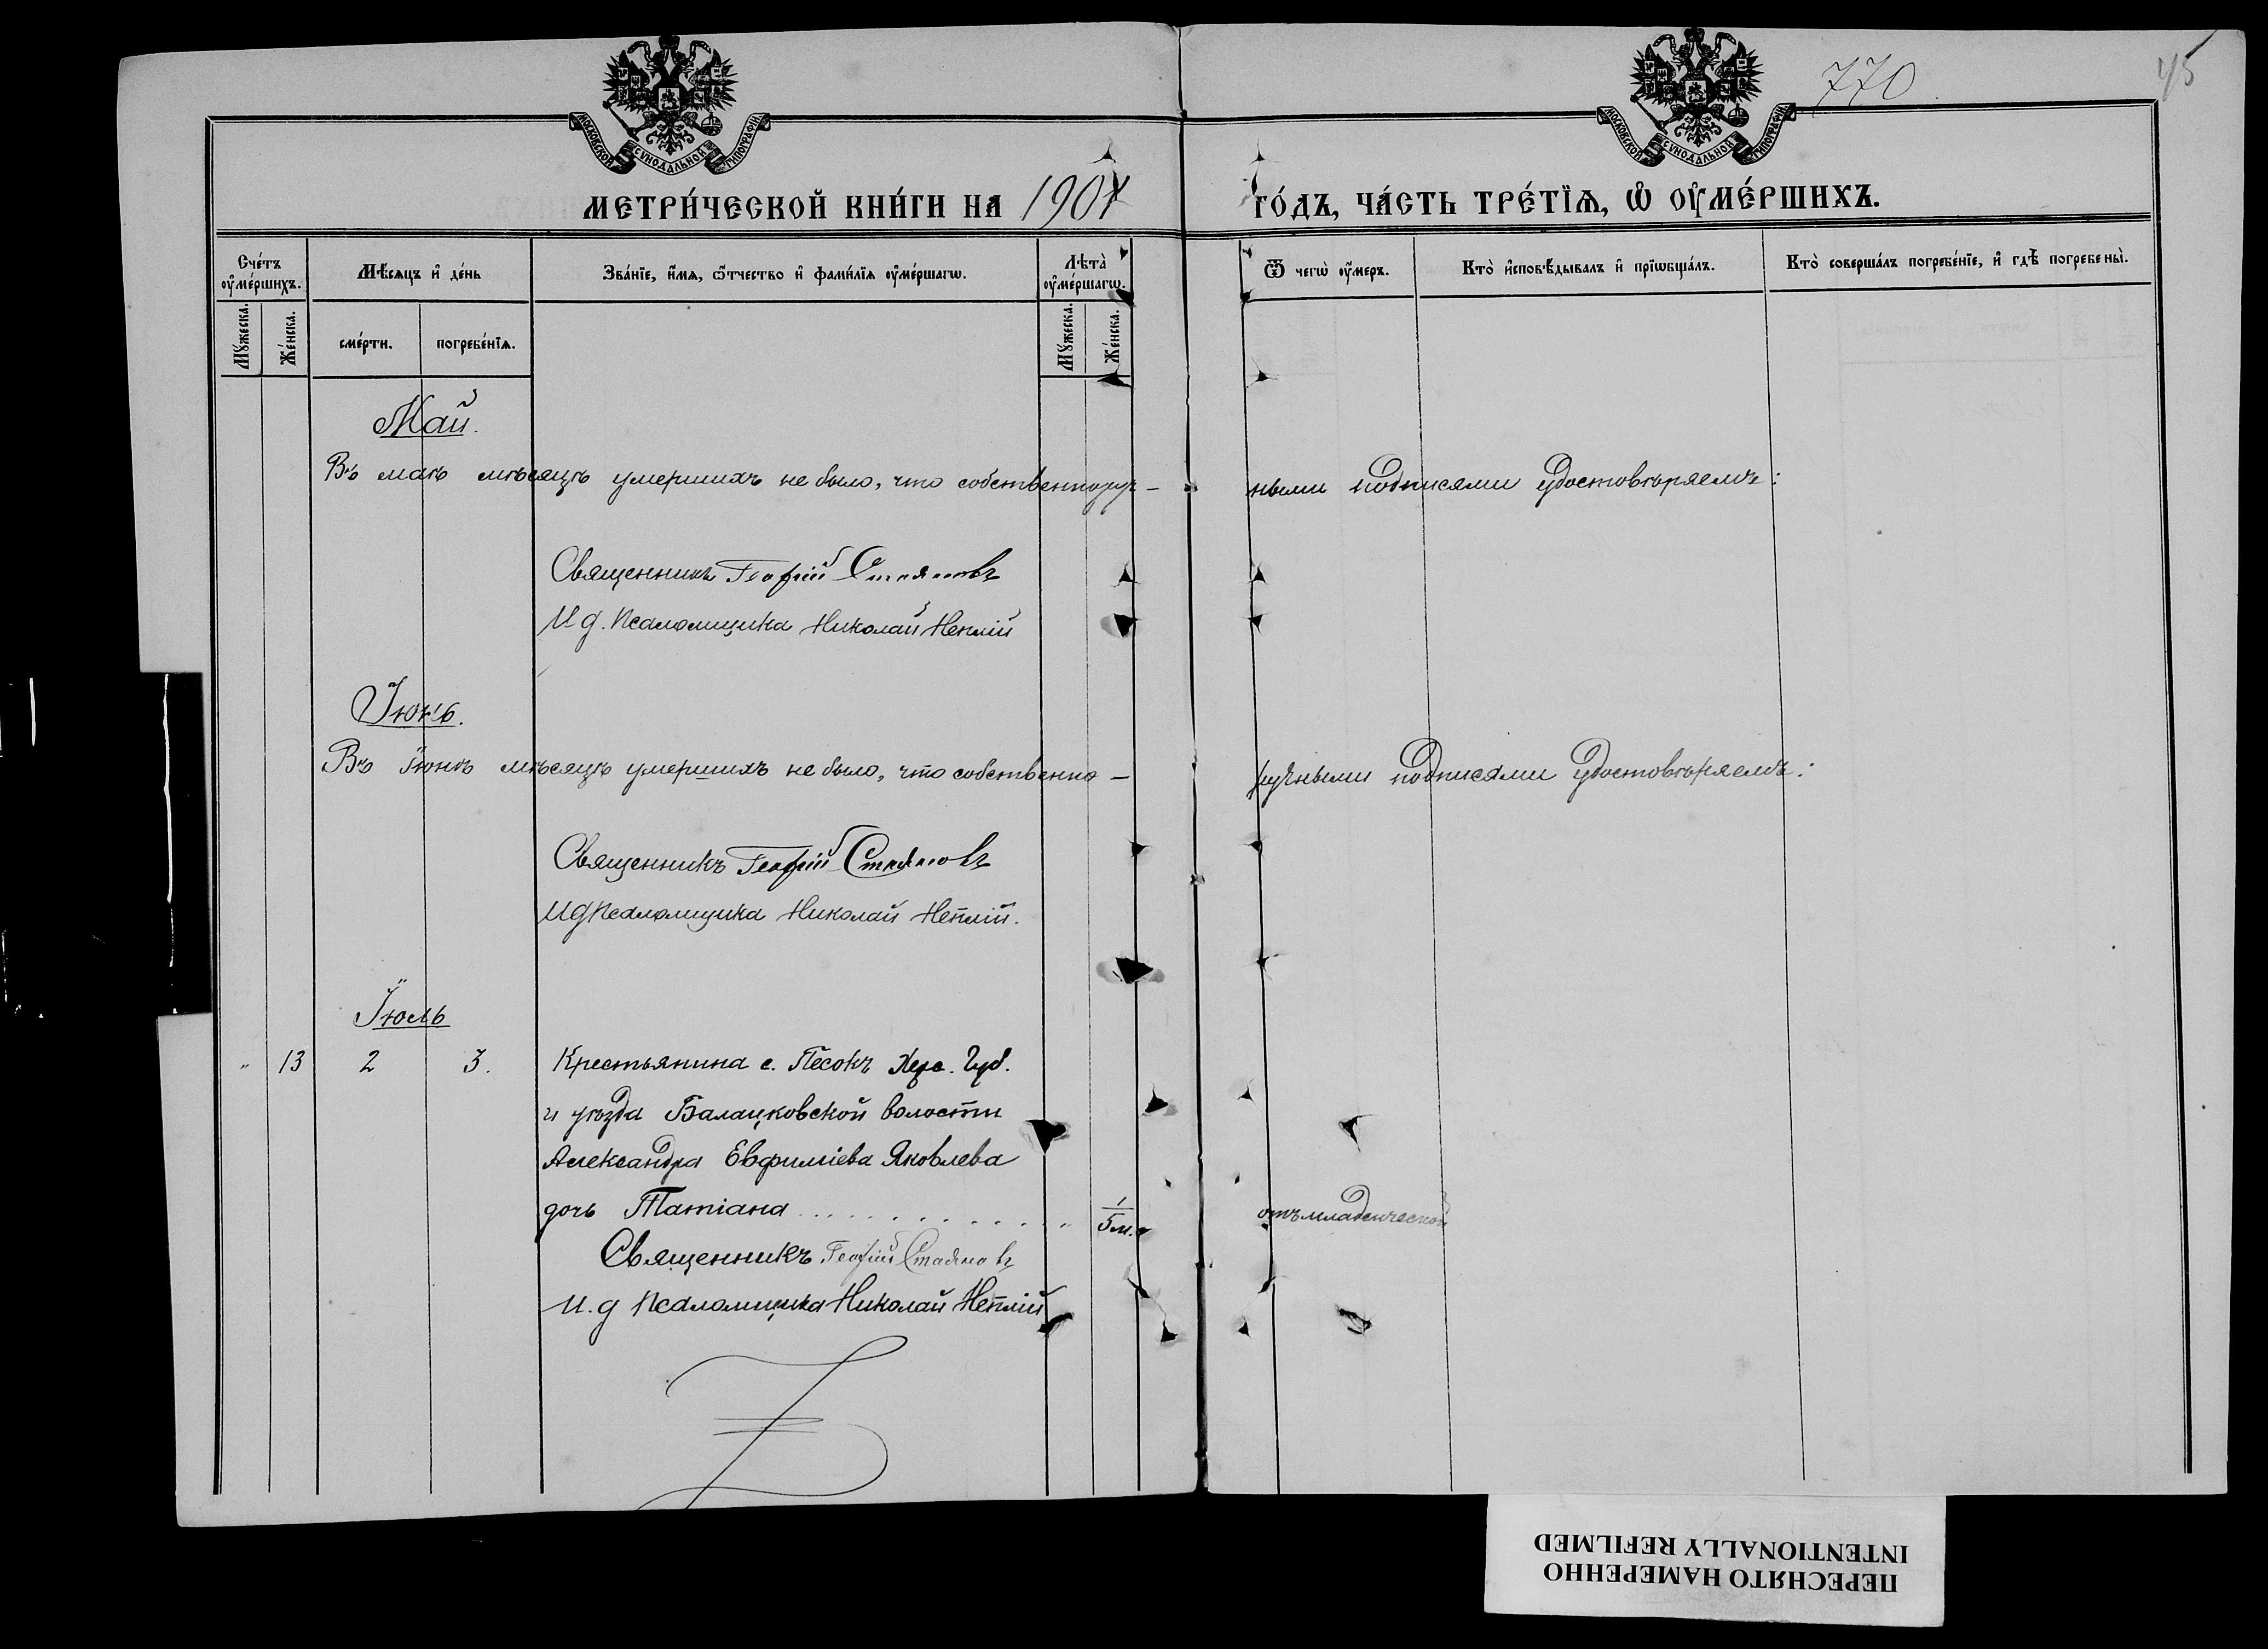 770
45
МОСКОВСКОЙ СѴНОДАЛЬНОЙ ТИПОГРАФІИ
МОСКОВСКОЙ СѴНОДАЛЬНОЙ ТИПОГРАФІИ
МЕТРИ́ЧЕСКОЙ КНИ́ГИ НА 1901 ГО́ДЪ, ЧА́СТЬ ТРЕ́ТЇѦ, Ѡ҆ ОУ҆МЕ́РШИХЪ.
Сче́тъ оу҆ме́ршихъ.
Мѣ́сѧцъ и҆ де́нь
Зва́нїе, и҆́мѧ, ѻ҆́тчество и҆ фами́лїѧ оу҆ме́ршагѡ.
Лѣта̀ оу҆ме́ршагѡ.
Ѿ чегѡ̀ оу҆́меръ.
Кто̀ и҆сповѣ́дывалъ и҆ прїѡбща́лъ.
Кто̀ соверша́лъ погребе́нїе, и҆ гдѣ̀ погребены̀.
Мꙋ́жеска.
Же́нска.
сме́рти.
погребе́нїѧ.
Мꙋ́жеска.
Же́нска.
Май.
Въ маѣ мѣсяцѣ умершихъ не было, что собственноруч-ными подписями удостовѣряемъ:
Священникъ Георгій Стояновъ
И д. Псаломщика Николай
Іюнь.
Въ Іюнѣ мѣсяцѣ умершихъ не было, что собственно-ручными подписями удостовѣряемъ:
Священникъ Георгій Стояновъ
И д Псаломщика Николай
Іюль
" 13 2 3. Крестьянина с. Песокъ Херс. Губ.
и уѣзда Балацковской волости
Александра Евфиміева Яковлева
дочь Татіана . . . . . . . . . . . . " 1/5 м. отъ младенческой
Священникъ Георгій Стояновъ
И. д Псаломщика Николай
ПЕРЕСНЯТО НАМЕРЕННО
INTENTIONALLY REFILMED